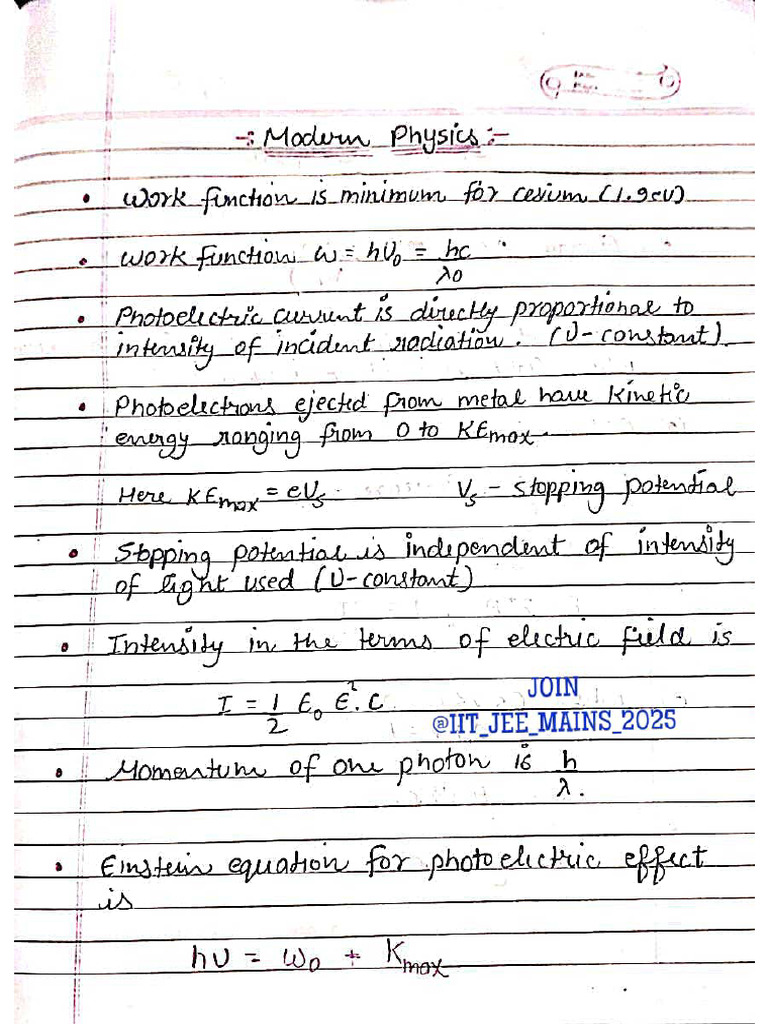 -: Modern Physics :-
• Work function is minimum for cesium (1.9eV)
• Work function ω = hν₀ = hc/λ0
• Photoelectric current is directly proportional to
intensity of incident radiation. (ν-constant).
• Photoelectrons ejected from metal have kinetic
energy ranging from 0 to KEmax.
Here KEmax = eVs Vs - stopping potential
• Stopping potential is independent of intensity
of light used (ν-constant)
• Intensity in the terms of electric field is
I = 1/2 ε₀ E². C
JOIN
@IIT_JEE_MAINS_2025
• Momentum of one photon is h/λ.
• Einstein equation for photoelectric effect
is
hν = ω₀ + Kmax